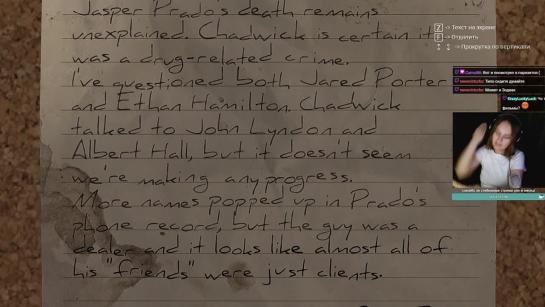 Jasper Prado's death remains
unexplained. Chadwick is certain it
was a drug-related crime.
I've questioned both Jared Porter
and Ethan Hamilton. Chadwick
talked to John Lyndon and
Albert Hall, but it doesn't seem
we're making any progress.
More names popped up in Prado's
phone record, but the guy was a
dealer and it looks like almost all of
his "friends" were just clients.
Z -> Текст на экране
F -> Отдалить
-> Прокрутка по вертикали